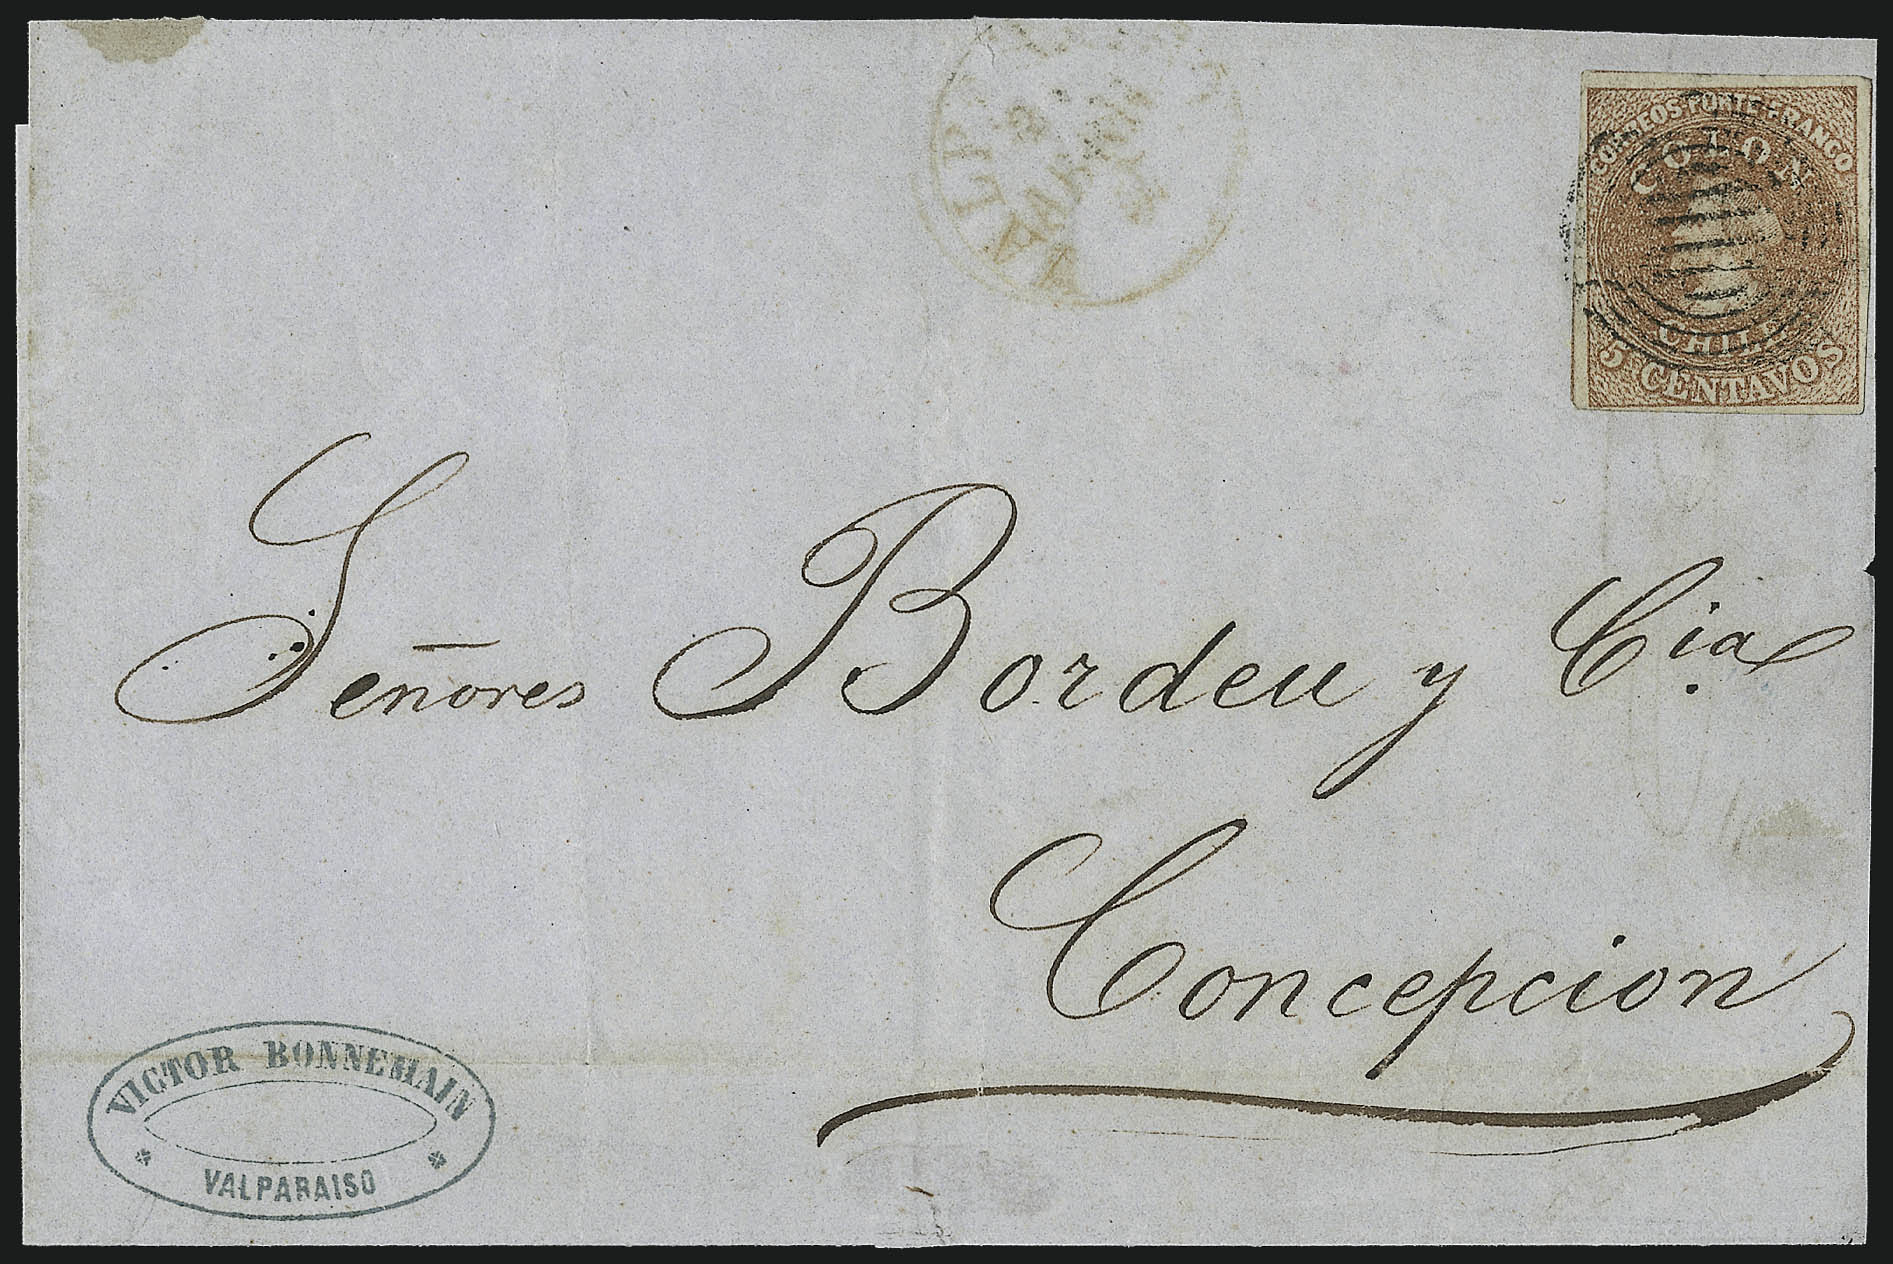 CORREOS PORTE FRANCO
COLON
CHILE
5 CENTAVOS
Señores Bordeu y Cia.
Concepcion
VICTOR BONNEMAIN
VALPARAISO